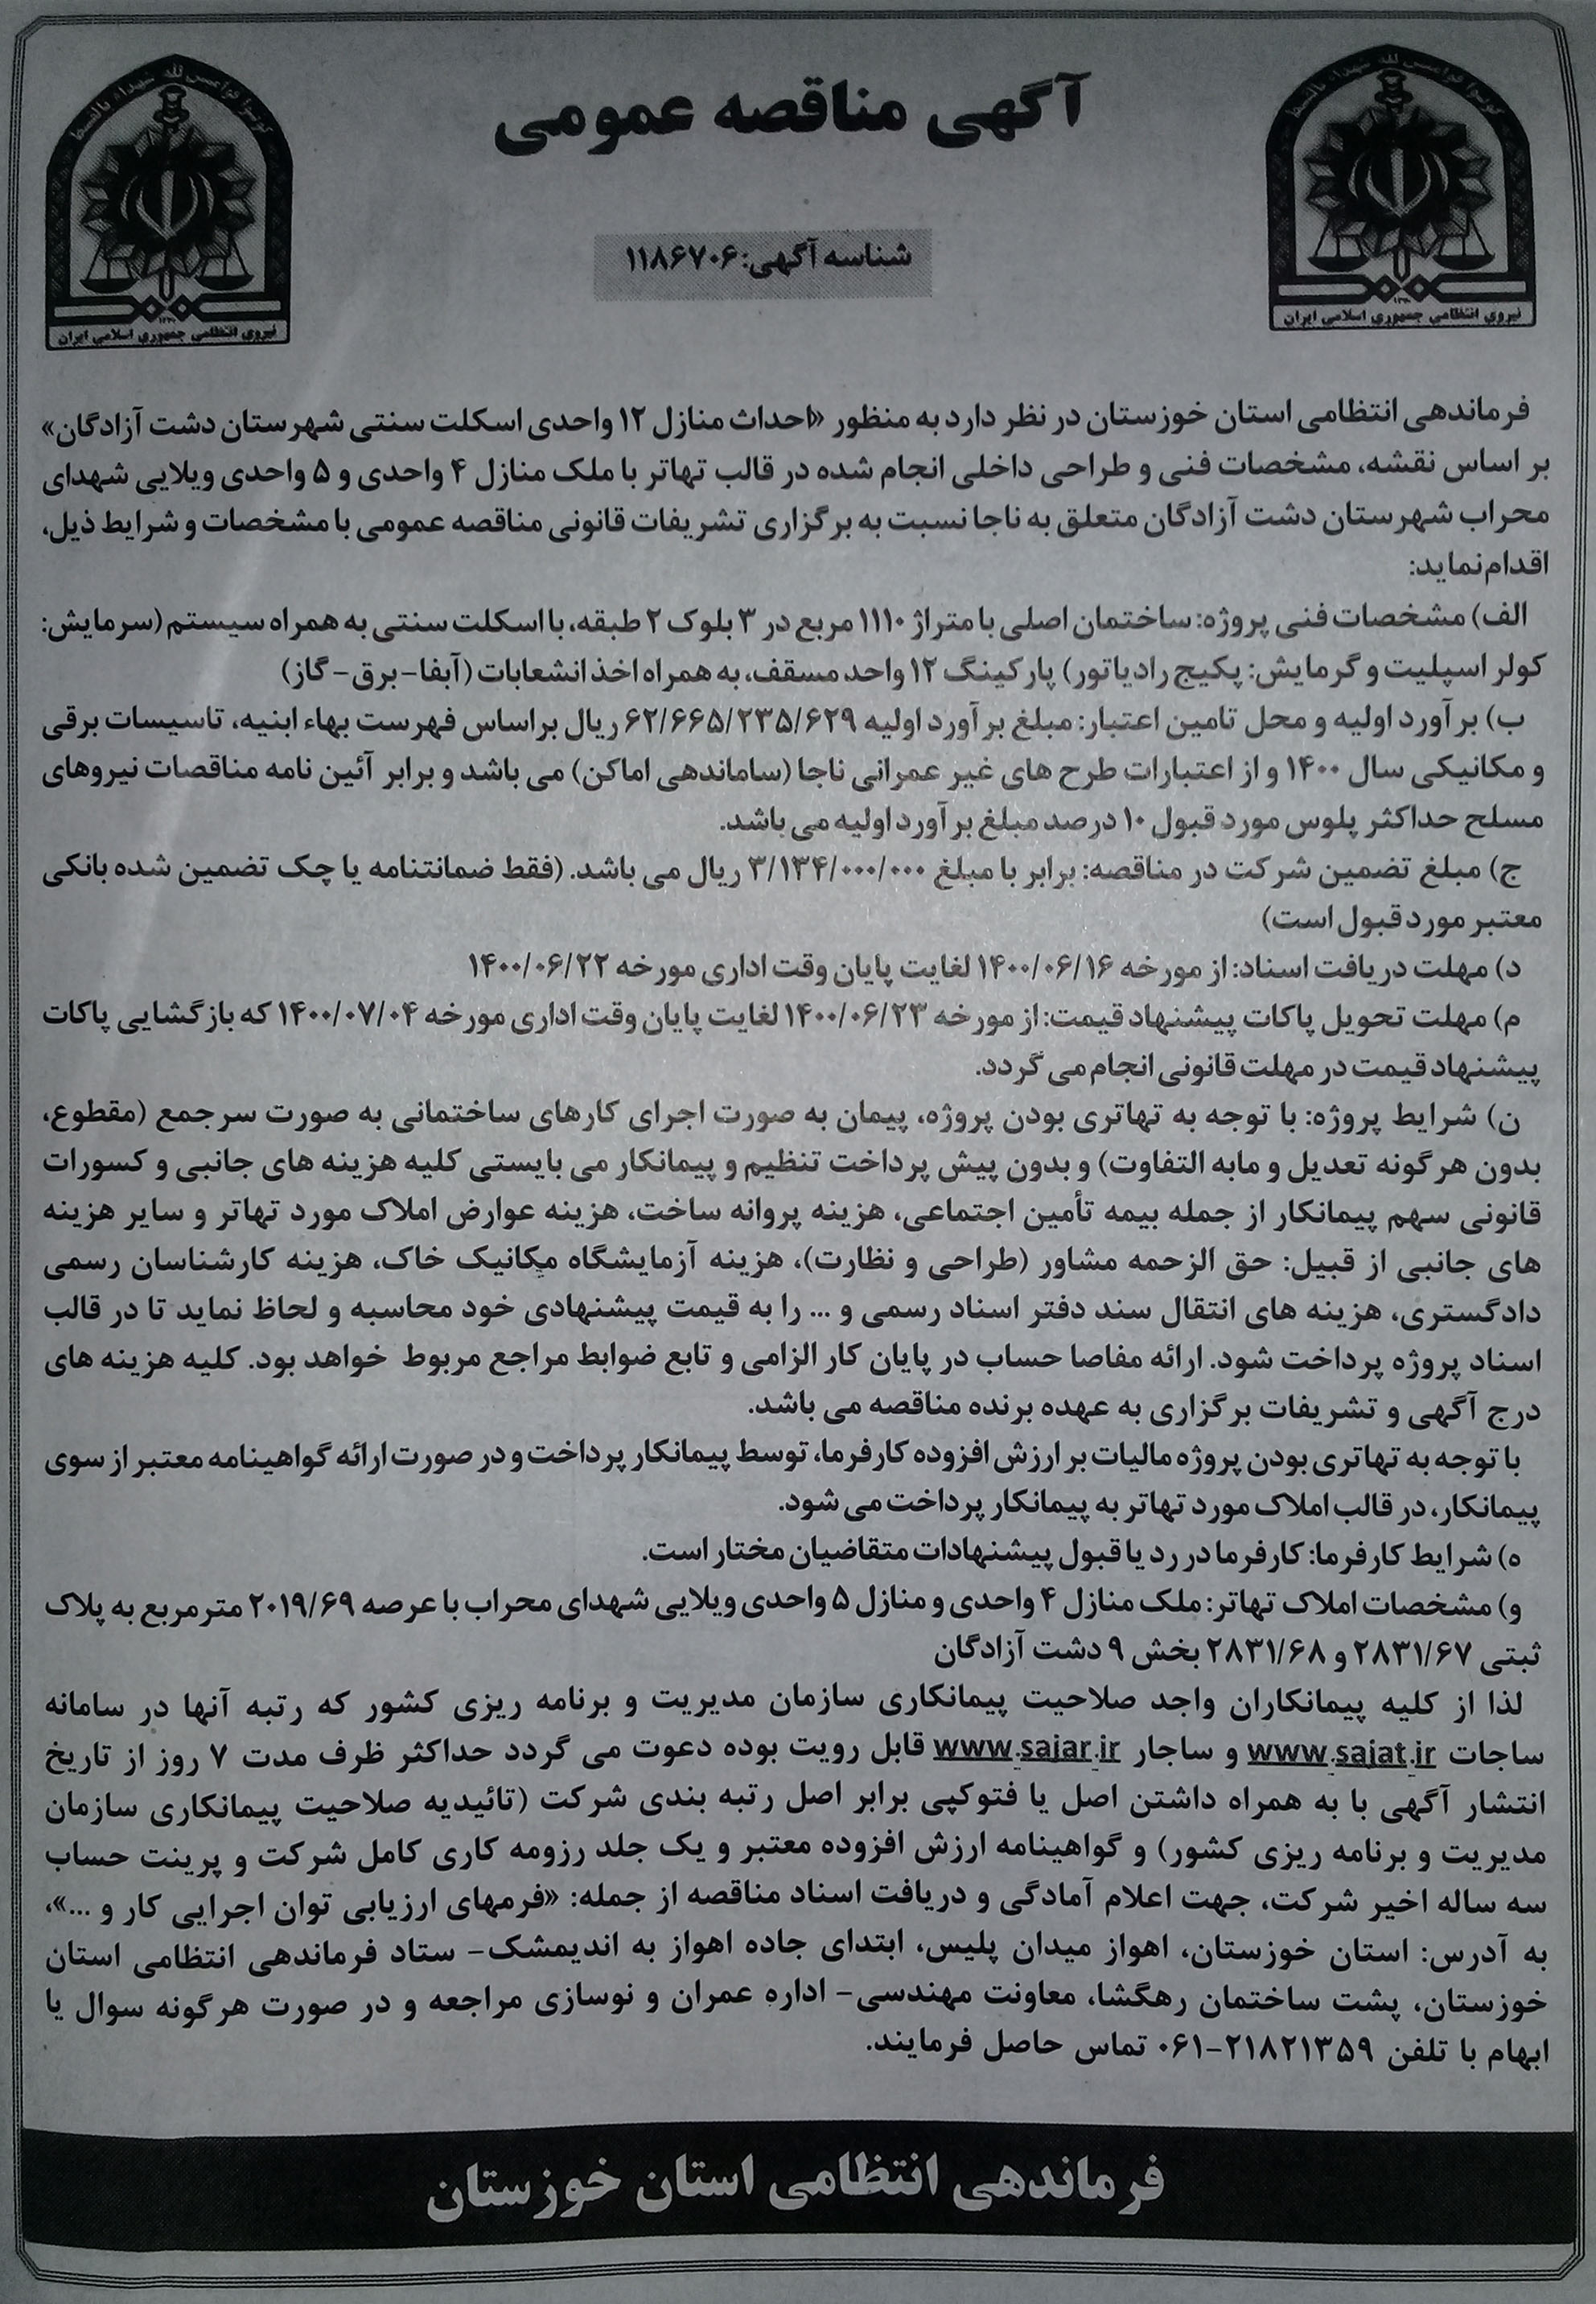 آگهی مناقصه عمومی
شناسه آگهی: ۱۱۸۶۷۰۶
نیروی انتظامی جمهوری اسلامی ایران
نیروی انتظامی جمهوری اسلامی ایران
فرماندهی انتظامی استان خوزستان در نظر دارد به منظور «احداث منازل ۱۲ واحدی اسکلت سنتی شهرستان دشت آزادگان»
بر اساس نقشه، مشخصات فنی و طراحی داخلی انجام شده در قالب تهاتر با ملک منازل ۴ واحدی و ۵ واحدی ویلایی شهدای
محراب شهرستان دشت آزادگان متعلق به ناجا نسبت به برگزاری تشریفات قانونی مناقصه عمومی با مشخصات و شرایط ذیل،
اقدام نماید:
الف) مشخصات فنی پروژه: ساختمان اصلی با متراژ ۱۱۱۰ مربع در ۳ بلوک ۲ طبقه، با اسکلت سنتی به همراه سیستم (سرمایش:
کولر اسپلیت و گرمایش: پکیج رادیاتور) پارکینگ ۱۲ واحد مسقف، به همراه اخذ انشعابات (آبفا-برق-گاز)
ب) برآورد اولیه و محل تامین اعتبار: مبلغ برآورد اولیه ۶۲/۶۶۵/۲۳۵/۶۲۹ ریال براساس فهرست بهاء ابنیه، تاسیسات برقی
و مکانیکی سال ۱۴۰۰ و از اعتبارات طرح های غیر عمرانی ناجا (ساماندهی اماکن) می باشد و برابر آئین نامه مناقصات نیروهای
مسلح حداکثر پلوس مورد قبول ۱۰ درصد مبلغ برآورد اولیه می باشد.
ج) مبلغ تضمین شرکت در مناقصه: برابر با مبلغ ۳/۱۳۴/۰۰۰/۰۰۰ ریال می باشد. (فقط ضمانتنامه یا چک تضمین شده بانکی
معتبر مورد قبول است)
د) مهلت دریافت اسناد: از مورخه ۱۴۰۰/۰۶/۱۶ لغایت پایان وقت اداری مورخه ۱۴۰۰/۰۶/۲۲
م) مهلت تحویل پاکات پیشنهاد قیمت: از مورخه ۱۴۰۰/۰۶/۲۳ لغایت پایان وقت اداری مورخه ۱۴۰۰/۰۷/۰۴ که بازگشایی پاکات
پیشنهاد قیمت در مهلت قانونی انجام می گردد.
ن) شرایط پروژه: با توجه به تهاتری بودن پروژه، پیمان به صورت اجرای کارهای ساختمانی به صورت سرجمع (مقطوع،
بدون هرگونه تعدیل و مابه التفاوت) و بدون پیش پرداخت تنظیم و پیمانکار می بایستی کلیه هزینه های جانبی و کسورات
قانونی سهم پیمانکار از جمله بیمه تأمین اجتماعی، هزینه پروانه ساخت، هزینه عوارض املاک مورد تهاتر و سایر هزینه
های جانبی از قبیل: حق الزحمه مشاور (طراحی و نظارت)، هزینه آزمایشگاه مکانیک خاک، هزینه کارشناسان رسمی
دادگستری، هزینه های انتقال سند دفتر اسناد رسمی و ... را به قیمت پیشنهادی خود محاسبه و لحاظ نماید تا در قالب
اسناد پروژه پرداخت شود. ارائه مفاصا حساب در پایان کار الزامی و تابع ضوابط مراجع مربوط خواهد بود. کلیه هزینه های
درج آگهی و تشریفات برگزاری به عهده برنده مناقصه می باشد.
با توجه به تهاتری بودن پروژه مالیات بر ارزش افزوده کارفرما، توسط پیمانکار پرداخت و در صورت ارائه گواهینامه معتبر از سوی
پیمانکار، در قالب املاک مورد تهاتر به پیمانکار پرداخت می شود.
ه) شرایط کارفرما: کارفرما در رد یا قبول پیشنهادات متقاضیان مختار است.
و) مشخصات املاک تهاتر: ملک منازل ۴ واحدی و منازل ۵ واحدی ویلایی شهدای محراب با عرصه ۲۰۱۹/۶۹ مترمربع به پلاک
ثبتی ۲۸۳۱/۶۷ و ۲۸۳۱/۶۸ بخش ۹ دشت آزادگان
لذا از کلیه پیمانکاران واجد صلاحیت پیمانکاری سازمان مدیریت و برنامه ریزی کشور که رتبه آنها در سامانه
ساجات www.sajat.ir و ساجار www.sajar.ir قابل رویت بوده دعوت می گردد حداکثر ظرف مدت ۷ روز از تاریخ
انتشار آگهی با به همراه داشتن اصل یا فتوکپی برابر اصل رتبه بندی شرکت (تائیدیه صلاحیت پیمانکاری سازمان
مدیریت و برنامه ریزی کشور) و گواهینامه ارزش افزوده معتبر و یک جلد رزومه کاری کامل شرکت و پرینت حساب
سه ساله اخیر شرکت، جهت اعلام آمادگی و دریافت اسناد مناقصه از جمله: «فرمهای ارزیابی توان اجرایی کار و ...»،
به آدرس: استان خوزستان، اهواز میدان پلیس، ابتدای جاده اهواز به اندیمشک- ستاد فرماندهی انتظامی استان
خوزستان، پشت ساختمان رهگشا، معاونت مهندسی- اداره عمران و نوسازی مراجعه و در صورت هرگونه سوال یا
ابهام با تلفن ۰۶۱-۲۱۸۲۱۳۵۹ تماس حاصل فرمایند.
فرماندهی انتظامی استان خوزستان